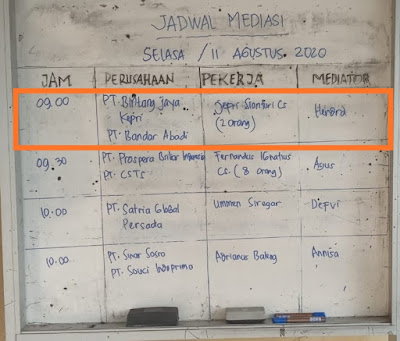 JADWAL MEDIASI
SELASA / 11 AGUSTUS 2020
JAM PERUSAHAAN PEKERJA MEDIATOR
09.00 PT. Bintang Jaya
Kepri
PT. Bandar Abadi
Cs
(2 orang)
09.30 PT. Prospera
PT. CSTS
Fernandus Ignatus
Cs. (8 orang)
Agus
10.00 PT. Satria Global
Persada
Ummen Siregar
10.00 PT. Sinar Sosro
PT. Souci Indoprima
Adrianus
Annisa